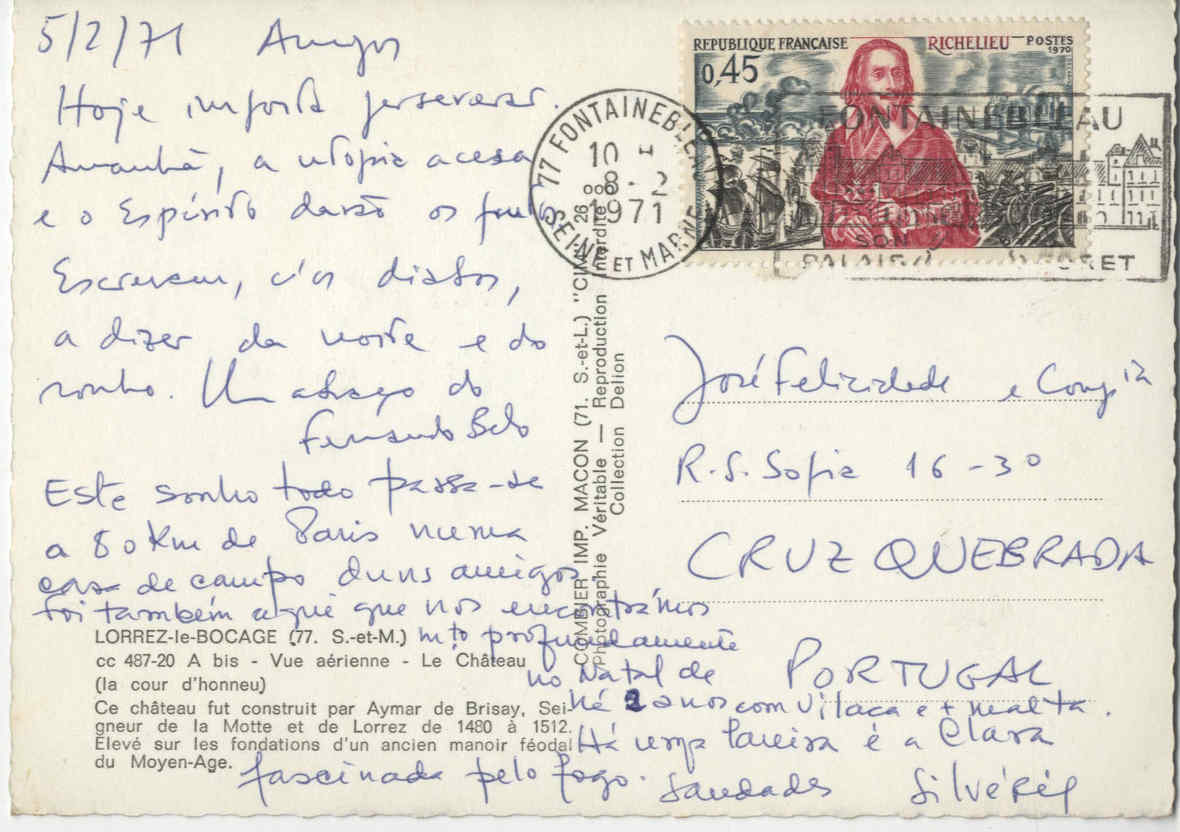 5/2/71 Amigos
Hoje importa perseverar.
Amanhã, a utopia acesa
e o Espírito darão os frutos
Escrevem, c'os diabos,
a dizer da noite e do
sonho. Um abraço do
Fernando Belo
Este sonho todo passa-se
a 80 Km de Paris numa
casa de campo duns amigos.
foi também aqui que nos encontrámos
mto profundamente
no Natal de
há 2 anos com Vilaça e + malta.
Há uma lareira e a Clara
fascinada pelo fogo. Saudades
LORREZ-le-BOCAGE (77. S.-et-M.)
cc 487-20 A bis - Vue aérienne - Le Château
(la cour d'honneu)
Ce château fut construit par Aymar de Brisay, Sei-
gneur de la Motte et de Lorrez de 1480 à 1512.
Élevé sur les fondations d'un ancien manoir féodal
du Moyen-Age.
COMBIER IMP. MACON (71. S.-et-L.) "CIM"
Photographie Véritable — Reproduction Interdite
Collection Delion
26 88
REPUBLIQUE FRANCAISE RICHELIEU POSTES
1970
0,45
77 FONTAINEBLEAU
10 H
8 - 2
1971
SEINE ET MARNE
FONTAINEBLEAU
SON
PALAIS FORET
José Felicidade e Compia
R. S. Sofia 16-30
CRUZ QUEBRADA
PORTUGAL